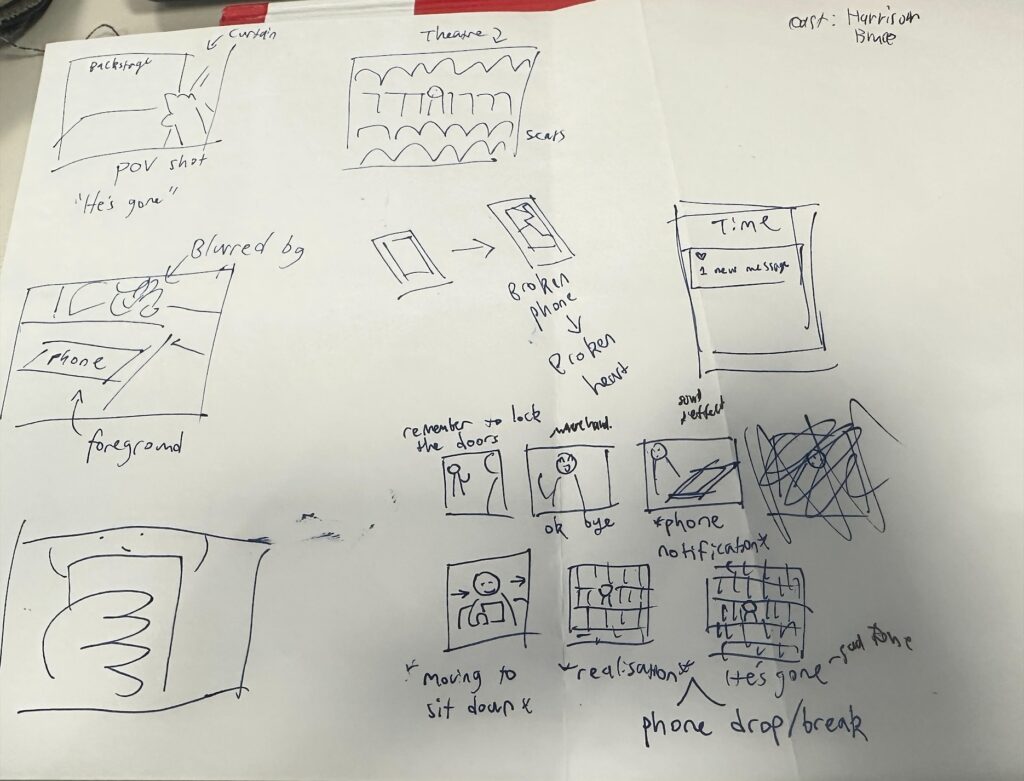 cast: Harrison
Bruce
Curtain
Backstage
POV shot
"He's gone"
Theatre 2
scars
Blurred bg
phone
foreground
Broken
phone
Broken
heart
Time
1 new message
remember to lock
the doors
wave hand
sound
effect
ok bye
*phone
notification*
*moving to
sit down*
*realisation*
He's gone - sad tone
phone drop/break